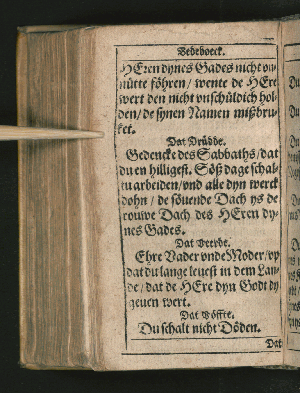 Bedeboeck.
HEren dynes Gades nicht vn-
nütte föhren/ wente de HEre
wert den nicht vnschüldich hol-
den/ de synen Namen mißbru-
ket.
Dat Drüdde.
Gedencke des Sabbaths/ dat
du en hilligest. Söß dage schal-
tu arbeiden/ vnd alle dyn werck
dohn/ de söuende Dach ys de
rouwe Dach des HEren dy-
nes Gades.
Dat Veerde.
Ehre Vader vnde Moder/ vp
dat du lange leuest in dem Lan-
de/ dat de HEre dyn Godt dy
geuen wert.
Dat Vöffte.
Du schalt nicht Döden.
Dat